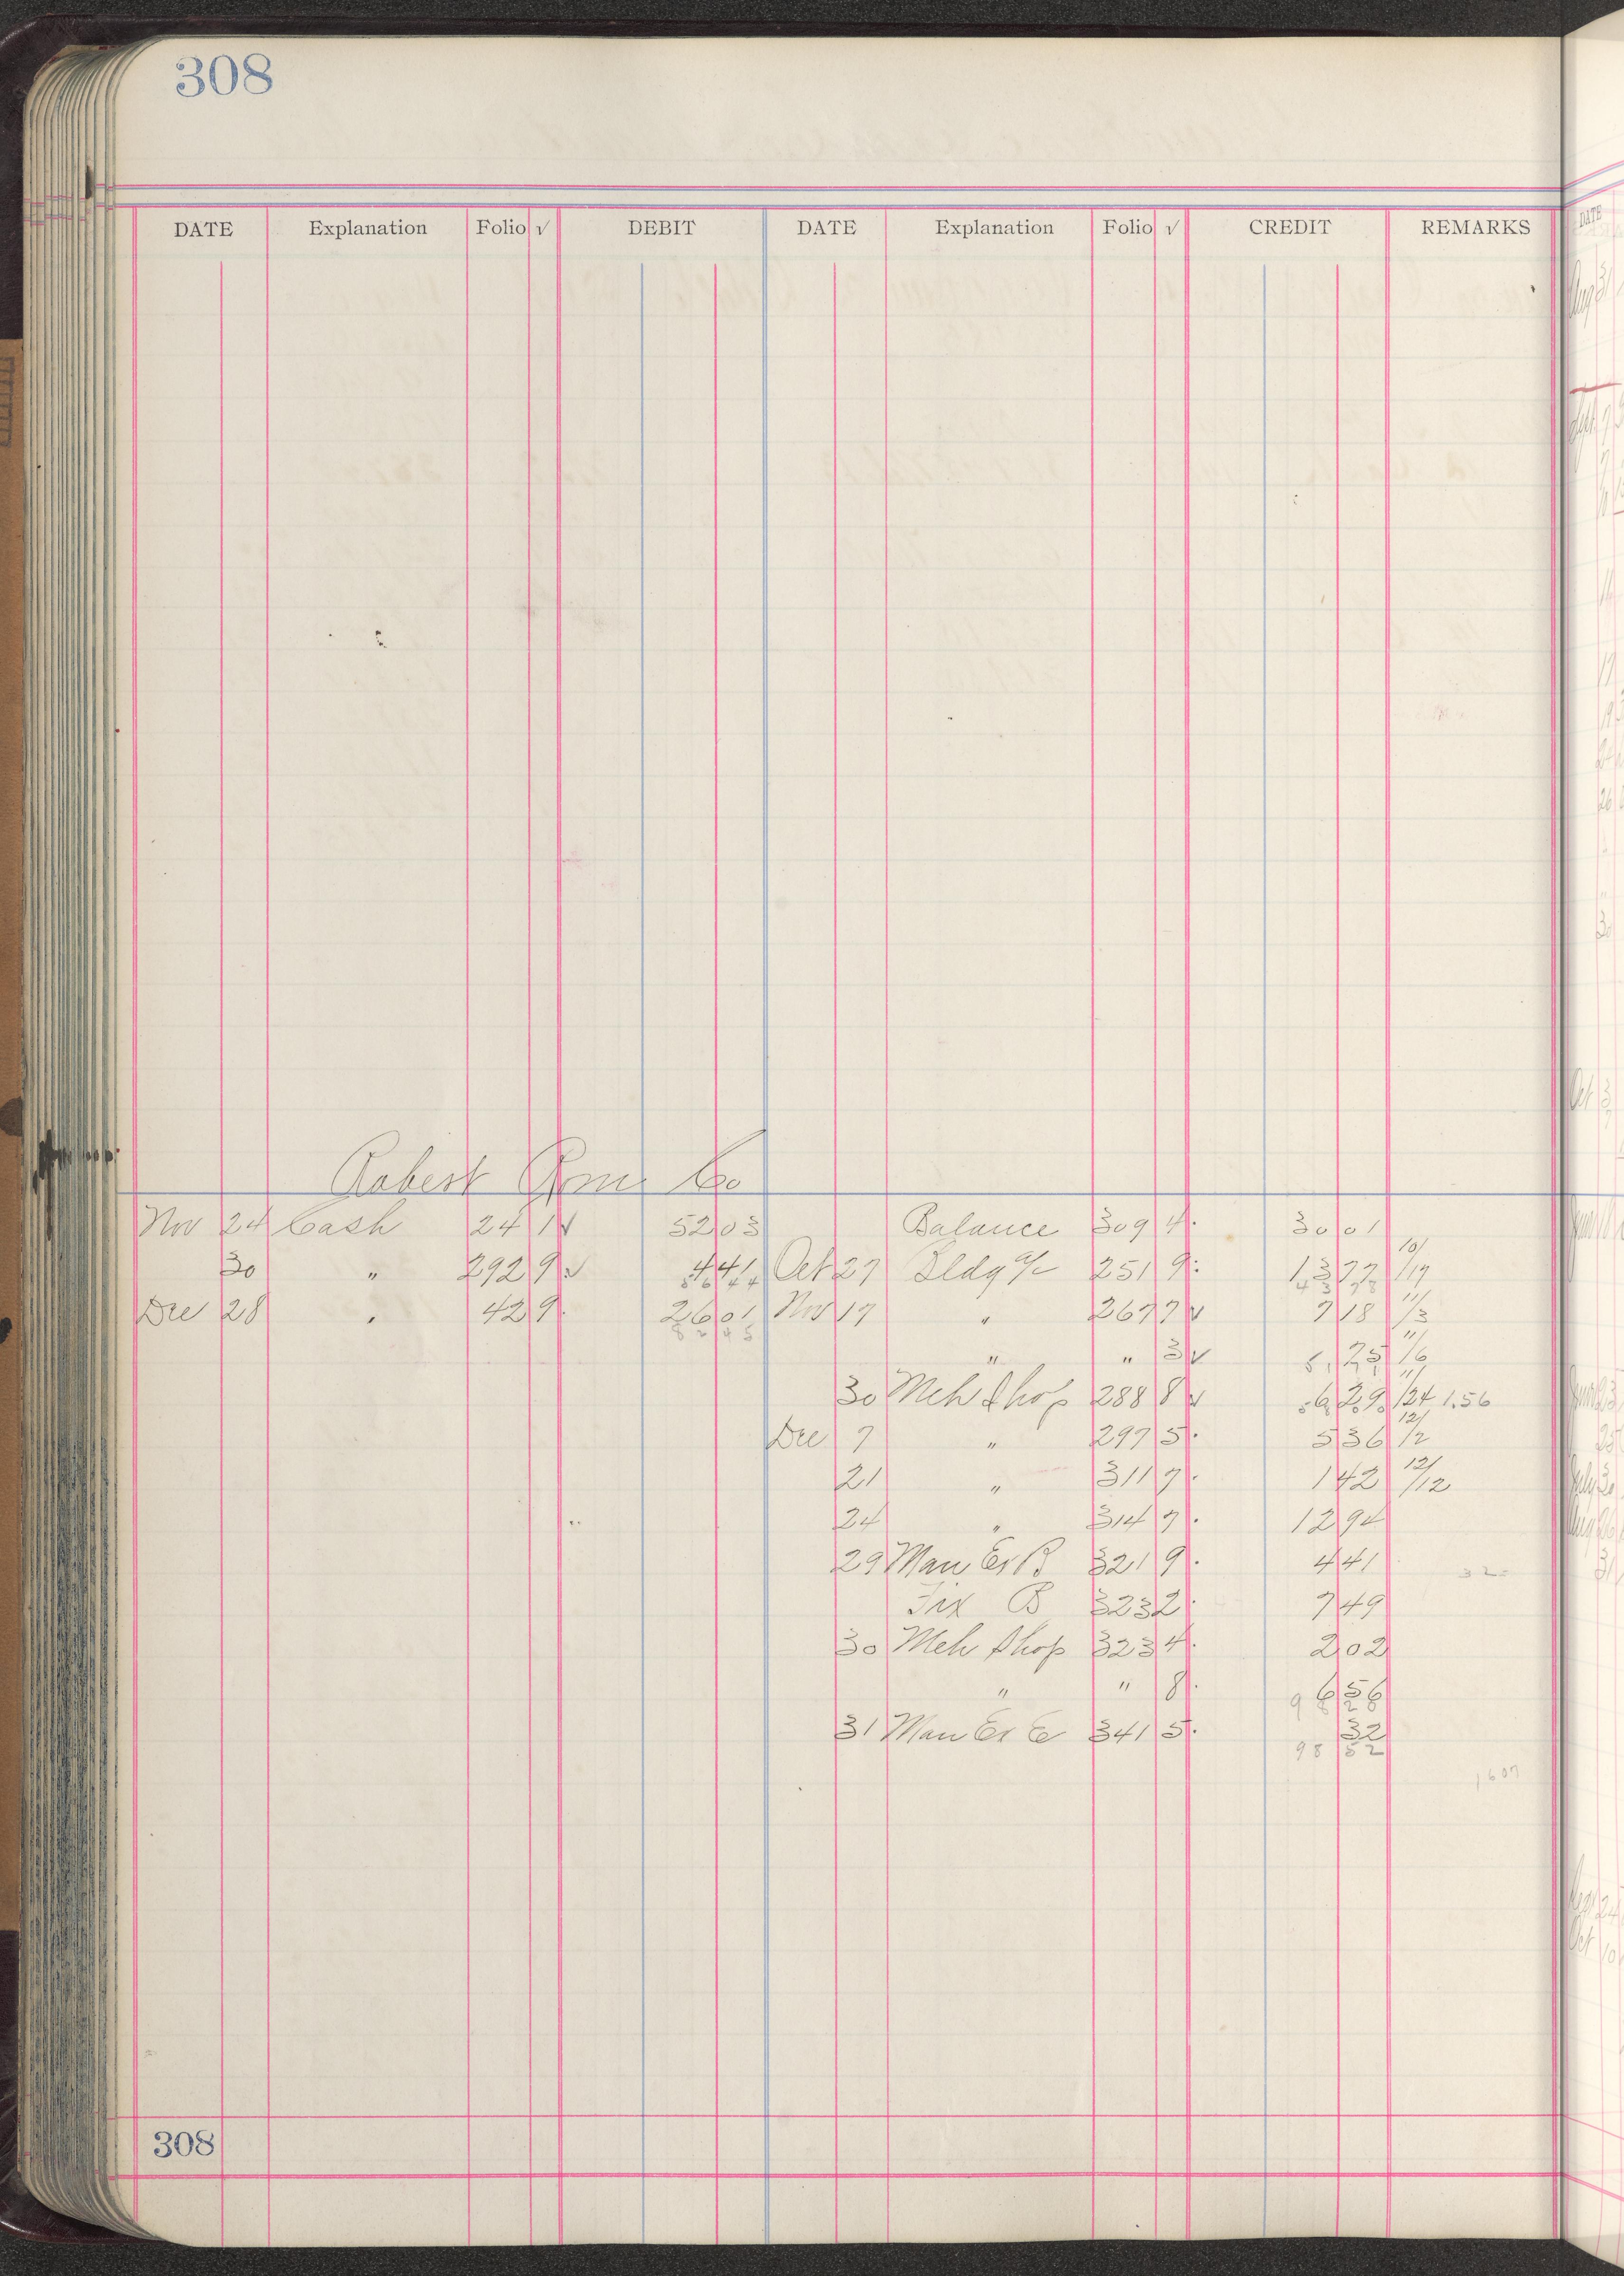 308
DATE Explanation Folio √ DEBIT DATE Explanation Folio √ CREDIT REMARKS
Robert Co
Nov 24 Cash 241 52 03 Balance 309 4 30 01
30 " 292 9 4 41 Oct 27 Bldg a/c 251 9 13 77 10/19
Dec 28 " 42 9 26 01 Nov 17 " 267 7 7 18 11/3
82 45
" " 3 1 25 11/16
30 Mch Shop 288 8 6 29 11/24 1.56
Dec 7 " 297 5 5 36 12/2
21 " 311 7 1 42 12/12
24 " 314 7 12 94
29 Man Ex B 321 9 4 41
Fix B 323 2 7 49
30 Mch Shop 323 4 2 02
" " 8 6 56
31 Man Ex C 341 5 32
98 52
1607
308